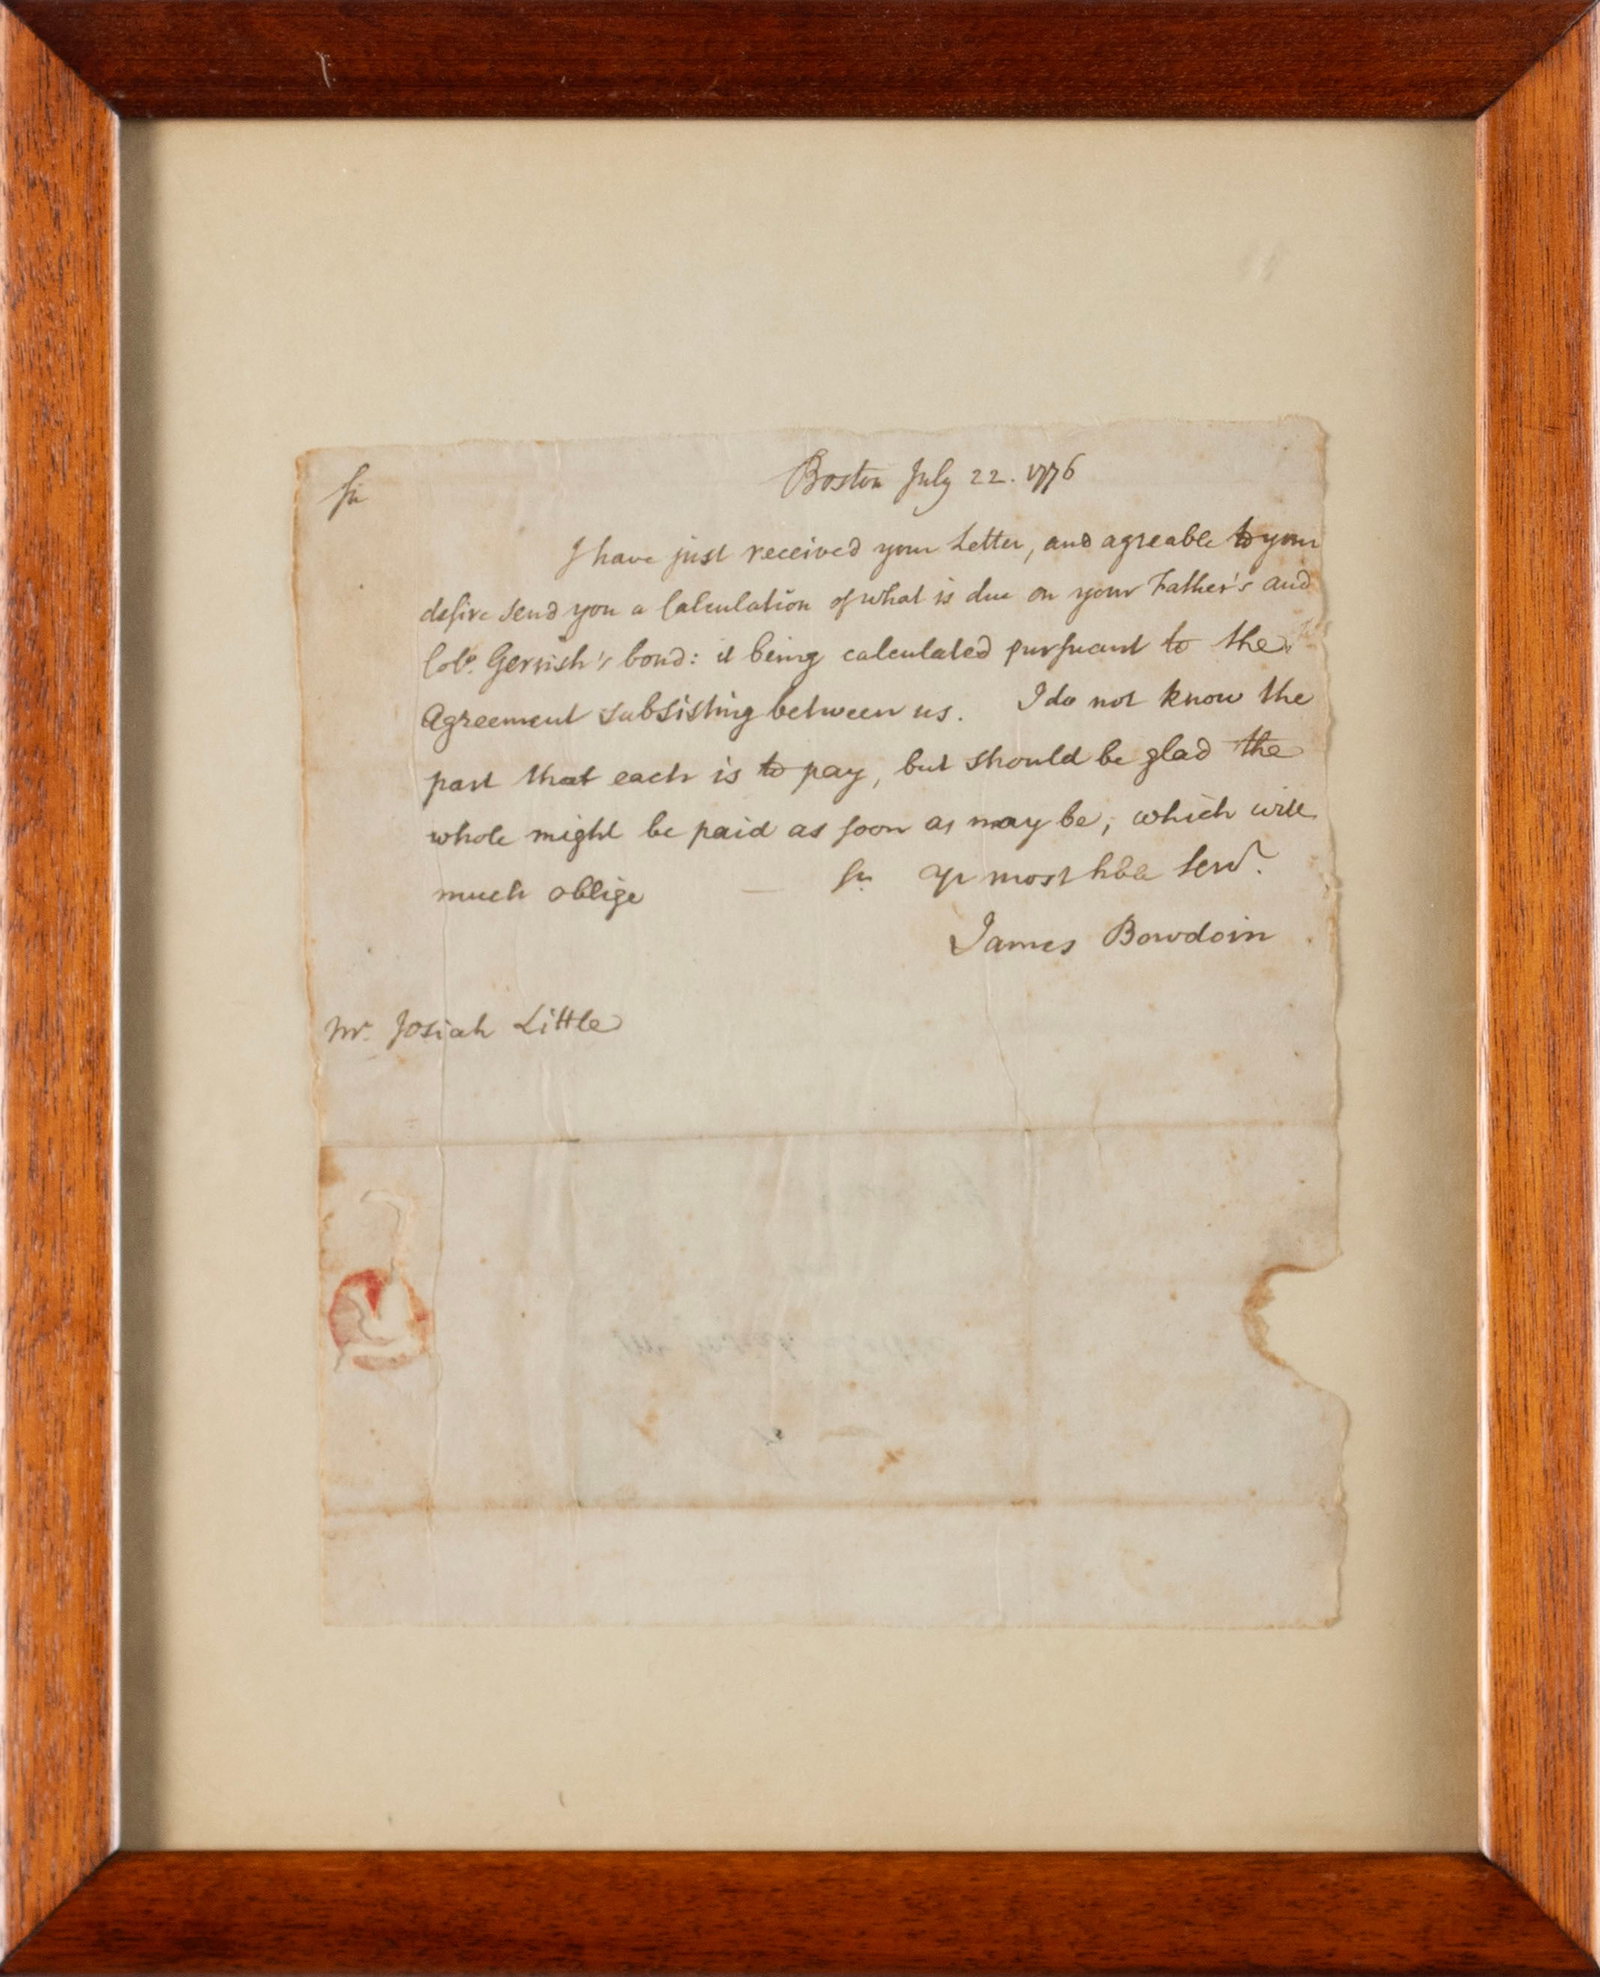 Sir
Boston July 22. 1776
I have just received your Letter, and agreable to your
desire send you a Calculation of what is due on your Father's and
Colo. Gerrish's bond: it being calculated pursuant to the
Agreement subsisting between us. I do not know the
part that each is to pay, but should be glad the
whole might be paid as soon as may be; which will
much oblige — Sr. Yr most hble Servt.
James Bowdoin
Mr. Josiah Little